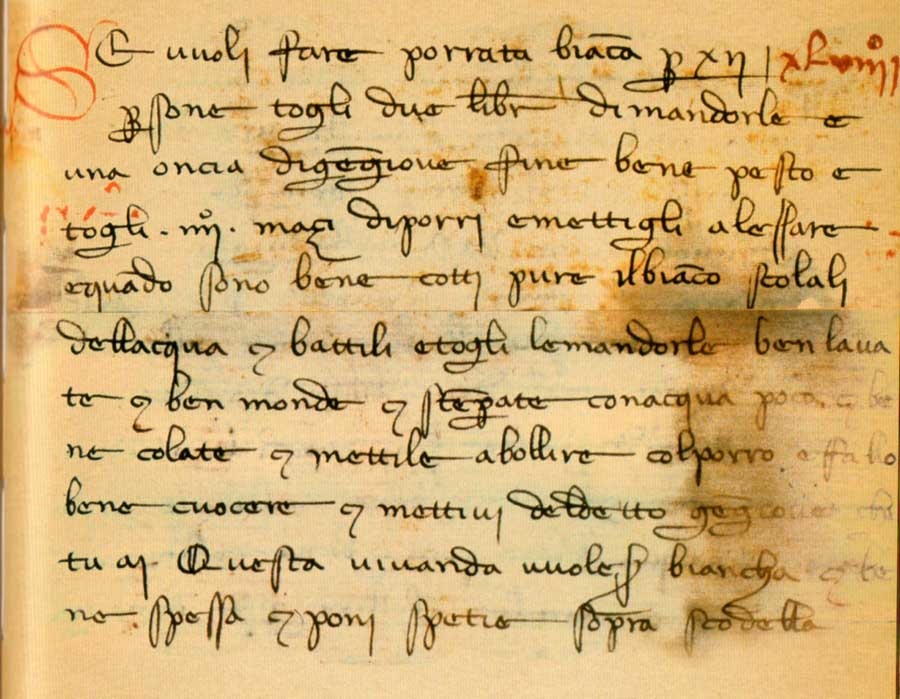 SE vuoli fare porrata biāca p xii | xLviiij
psone togli due libr di mandorle e
una oncia digēgiove fine bene pesto e
togli . iiij . maçi diporri emettigli alessare
equādo sono bene cotti pure ilbiāco scolali
dellacqua ⁊ battili etogli lemandorle ben lava
te ⁊ ben monde ⁊ stēpate conacqua poca ⁊ be
ne colate ⁊ mettile abollire colporro e fallo
bene cuocere ⁊ mettivi deldetto gēgiove che
tu ai Questa vivanda vuolesβ biancha ⁊ be
ne spessa ⁊ poni spetie sopra scodella